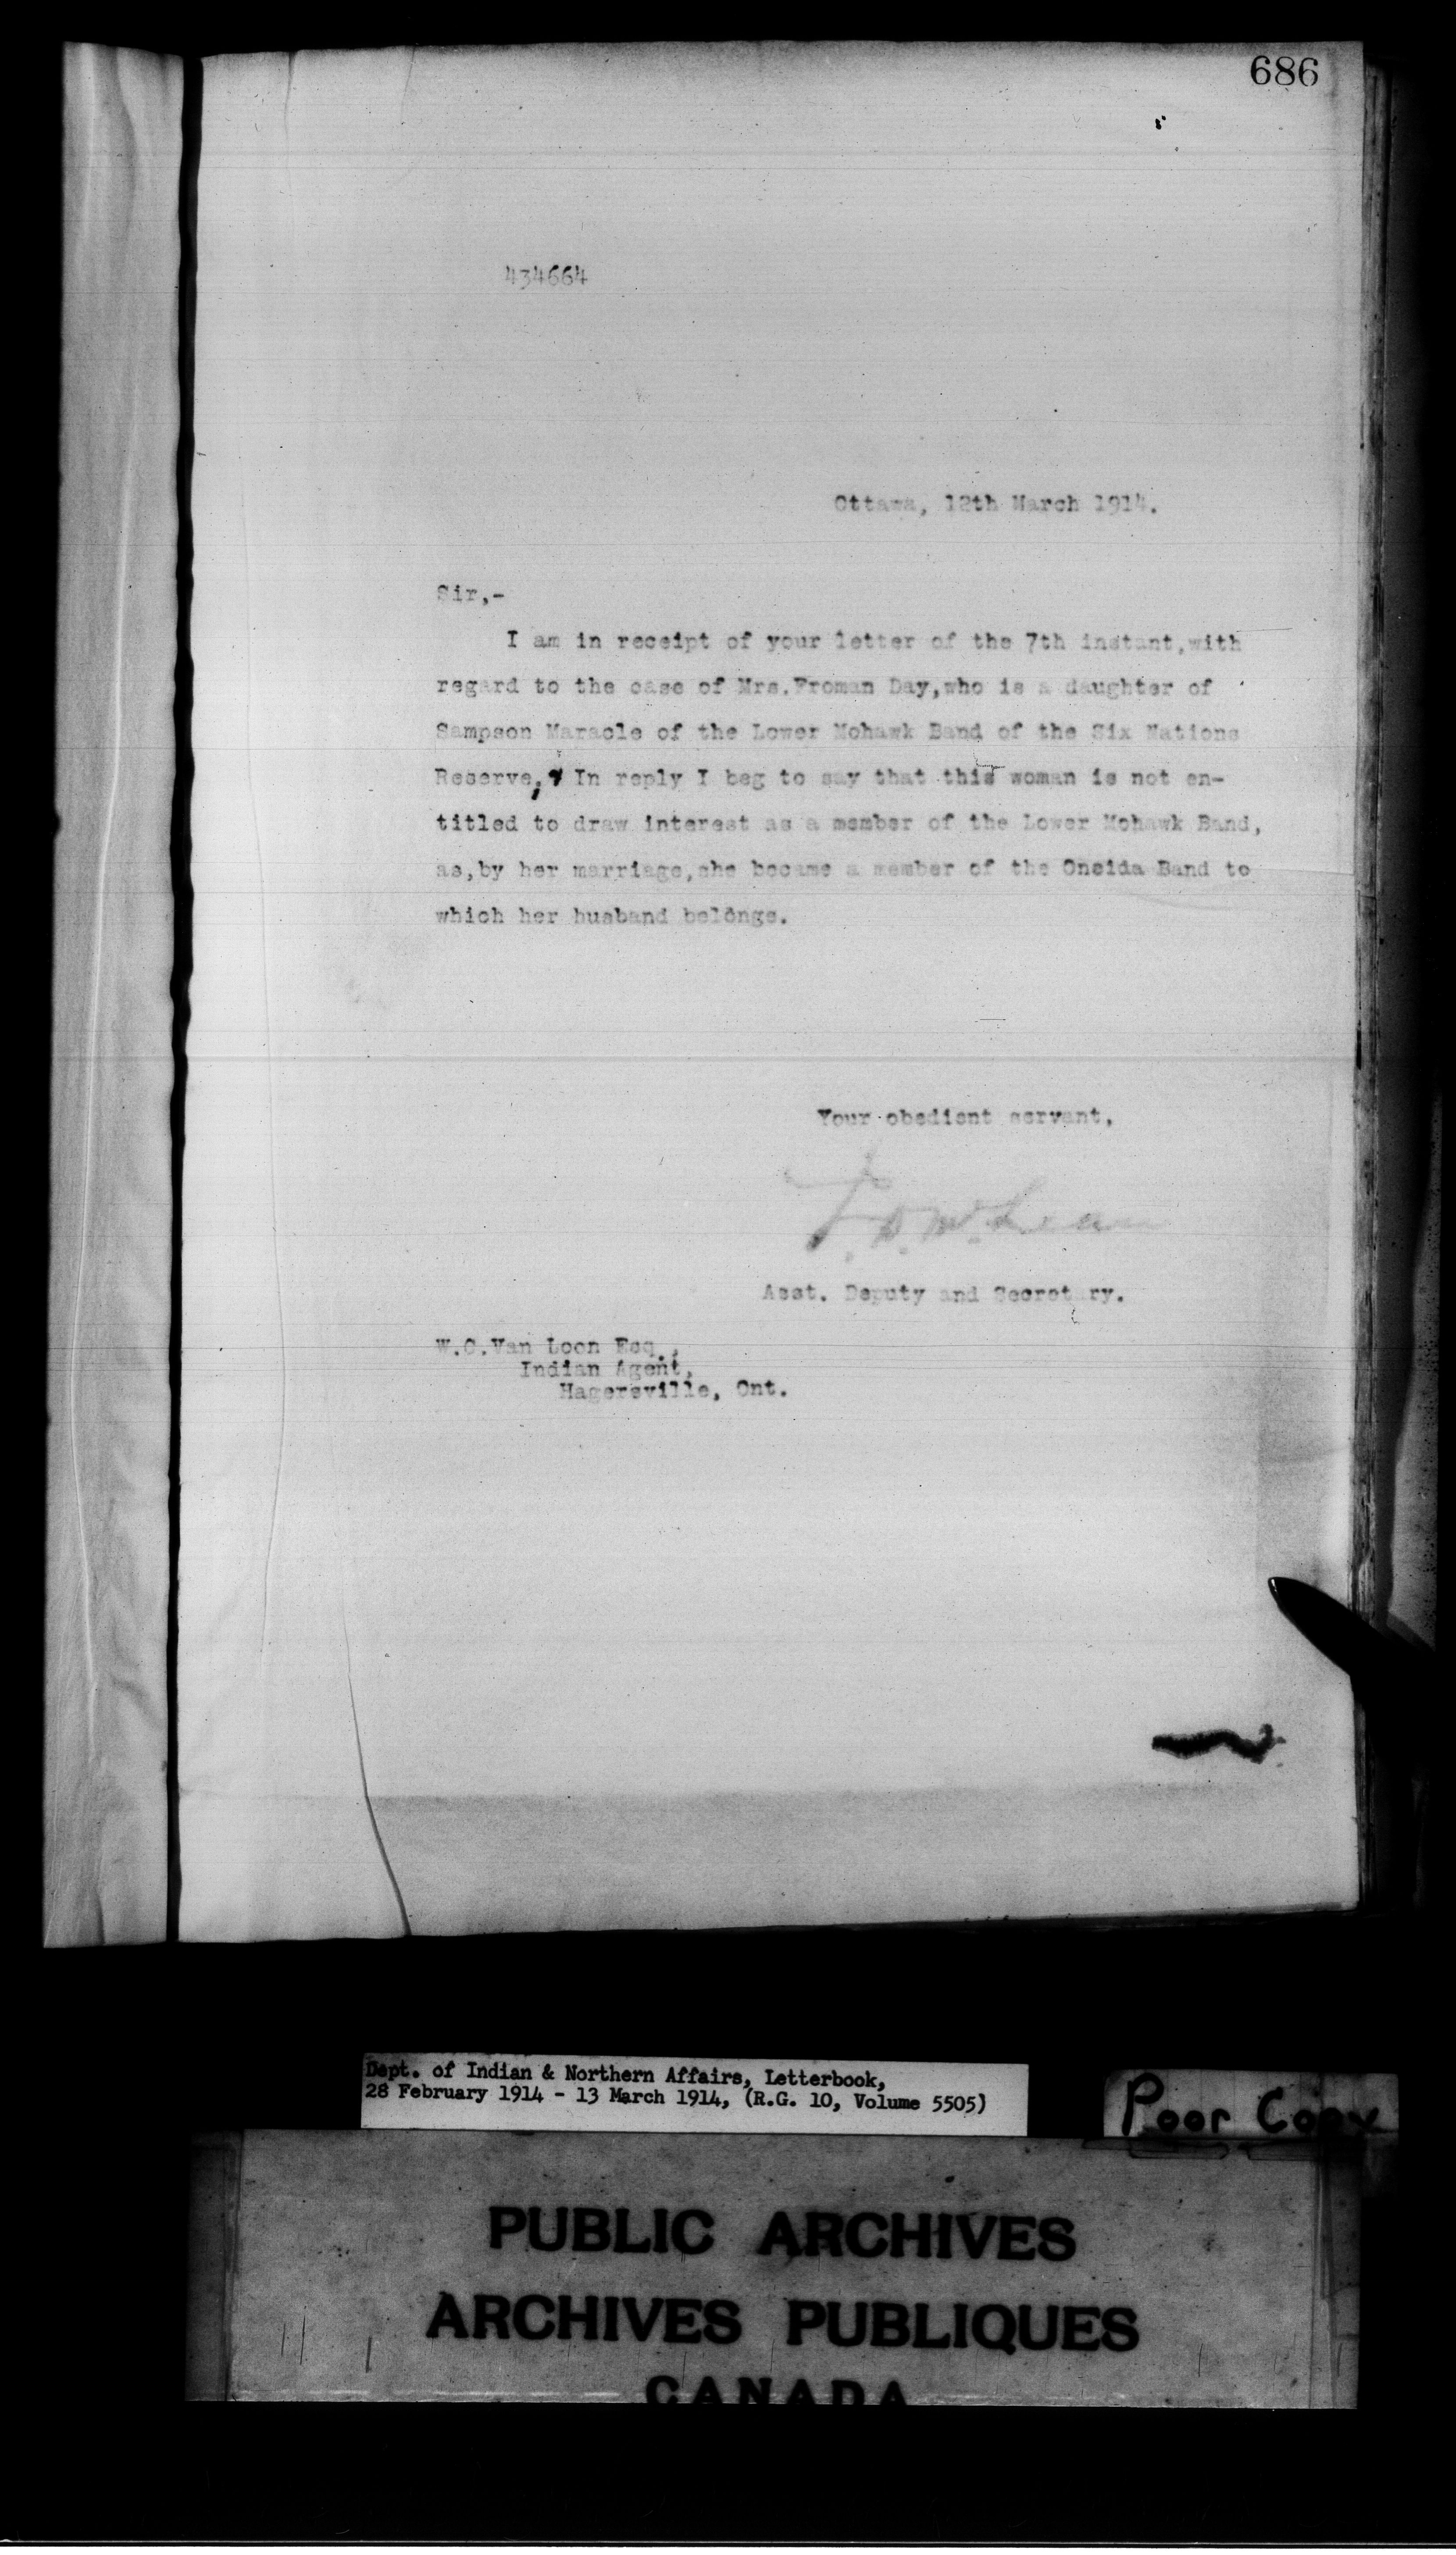 686
434664
Ottawa, 12th March 1914.
Sir,-
I am in receipt of your letter of the 7th instant,with
regard to the case of Mrs.Froman Day,who is a daughter of
Sampson Maracle of the Lower Mohawk Band of the Six Nations
Reserve, In reply I beg to say that this woman is not en-
titled to draw interest as a member of the Lower Mohawk Band,
as,by her marriage,she became a member of the Oneida Band to
which her husband belongs.
Your obedient servant,
J. D. McLean
Asst. Deputy and Secretary.
W.C.Van Loon Esq.,
Indian Agent,
Hagersville, Ont.
Dept. of Indian & Northern Affairs, Letterbook,
28 February 1914 - 13 March 1914, (R.G. 10, Volume 5505)
Poor Copy
PUBLIC ARCHIVES
ARCHIVES PUBLIQUES
CANADA